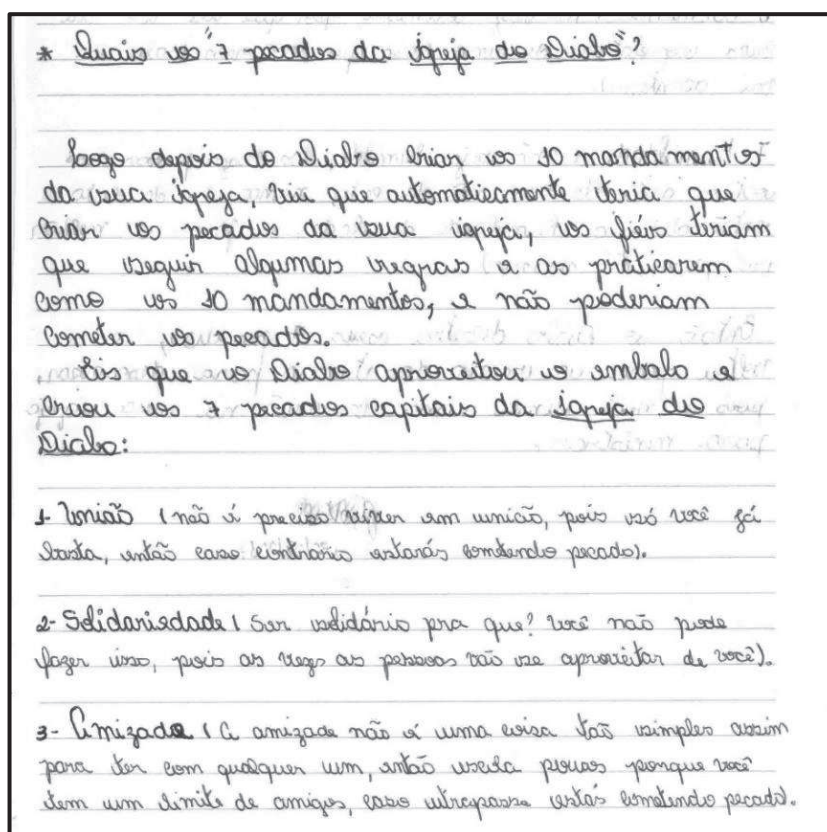 * Quais os "7 pecados da igreja do Diabo"?
Logo depois do Diabo criar os 10 mandamentos
da sua igreja, viu que automaticamente teria que
criar os pecados da sua igreja, os fiéis teriam
que seguir algumas regras e as praticarem
como os 10 mandamentos, e não poderiam
cometer os pecados.
Eis que o Diabo aproveitou o embalo e
criou os 7 pecados capitais da igreja do
Diabo:
1- União (não é preciso viver em união, pois só você já
basta, então caso contrário estarás cometendo pecado).
2- Solidariedade (Ser solidário pra que? Você não pode
fazer isso, pois as vezes as pessoas vão se aproveitar de você).
3- Amizade (A amizade não é uma coisa tão simples assim
para ter com qualquer um, então poucos porque você
tem um limite de amigos, caso utrapasse estás cometendo pecado).